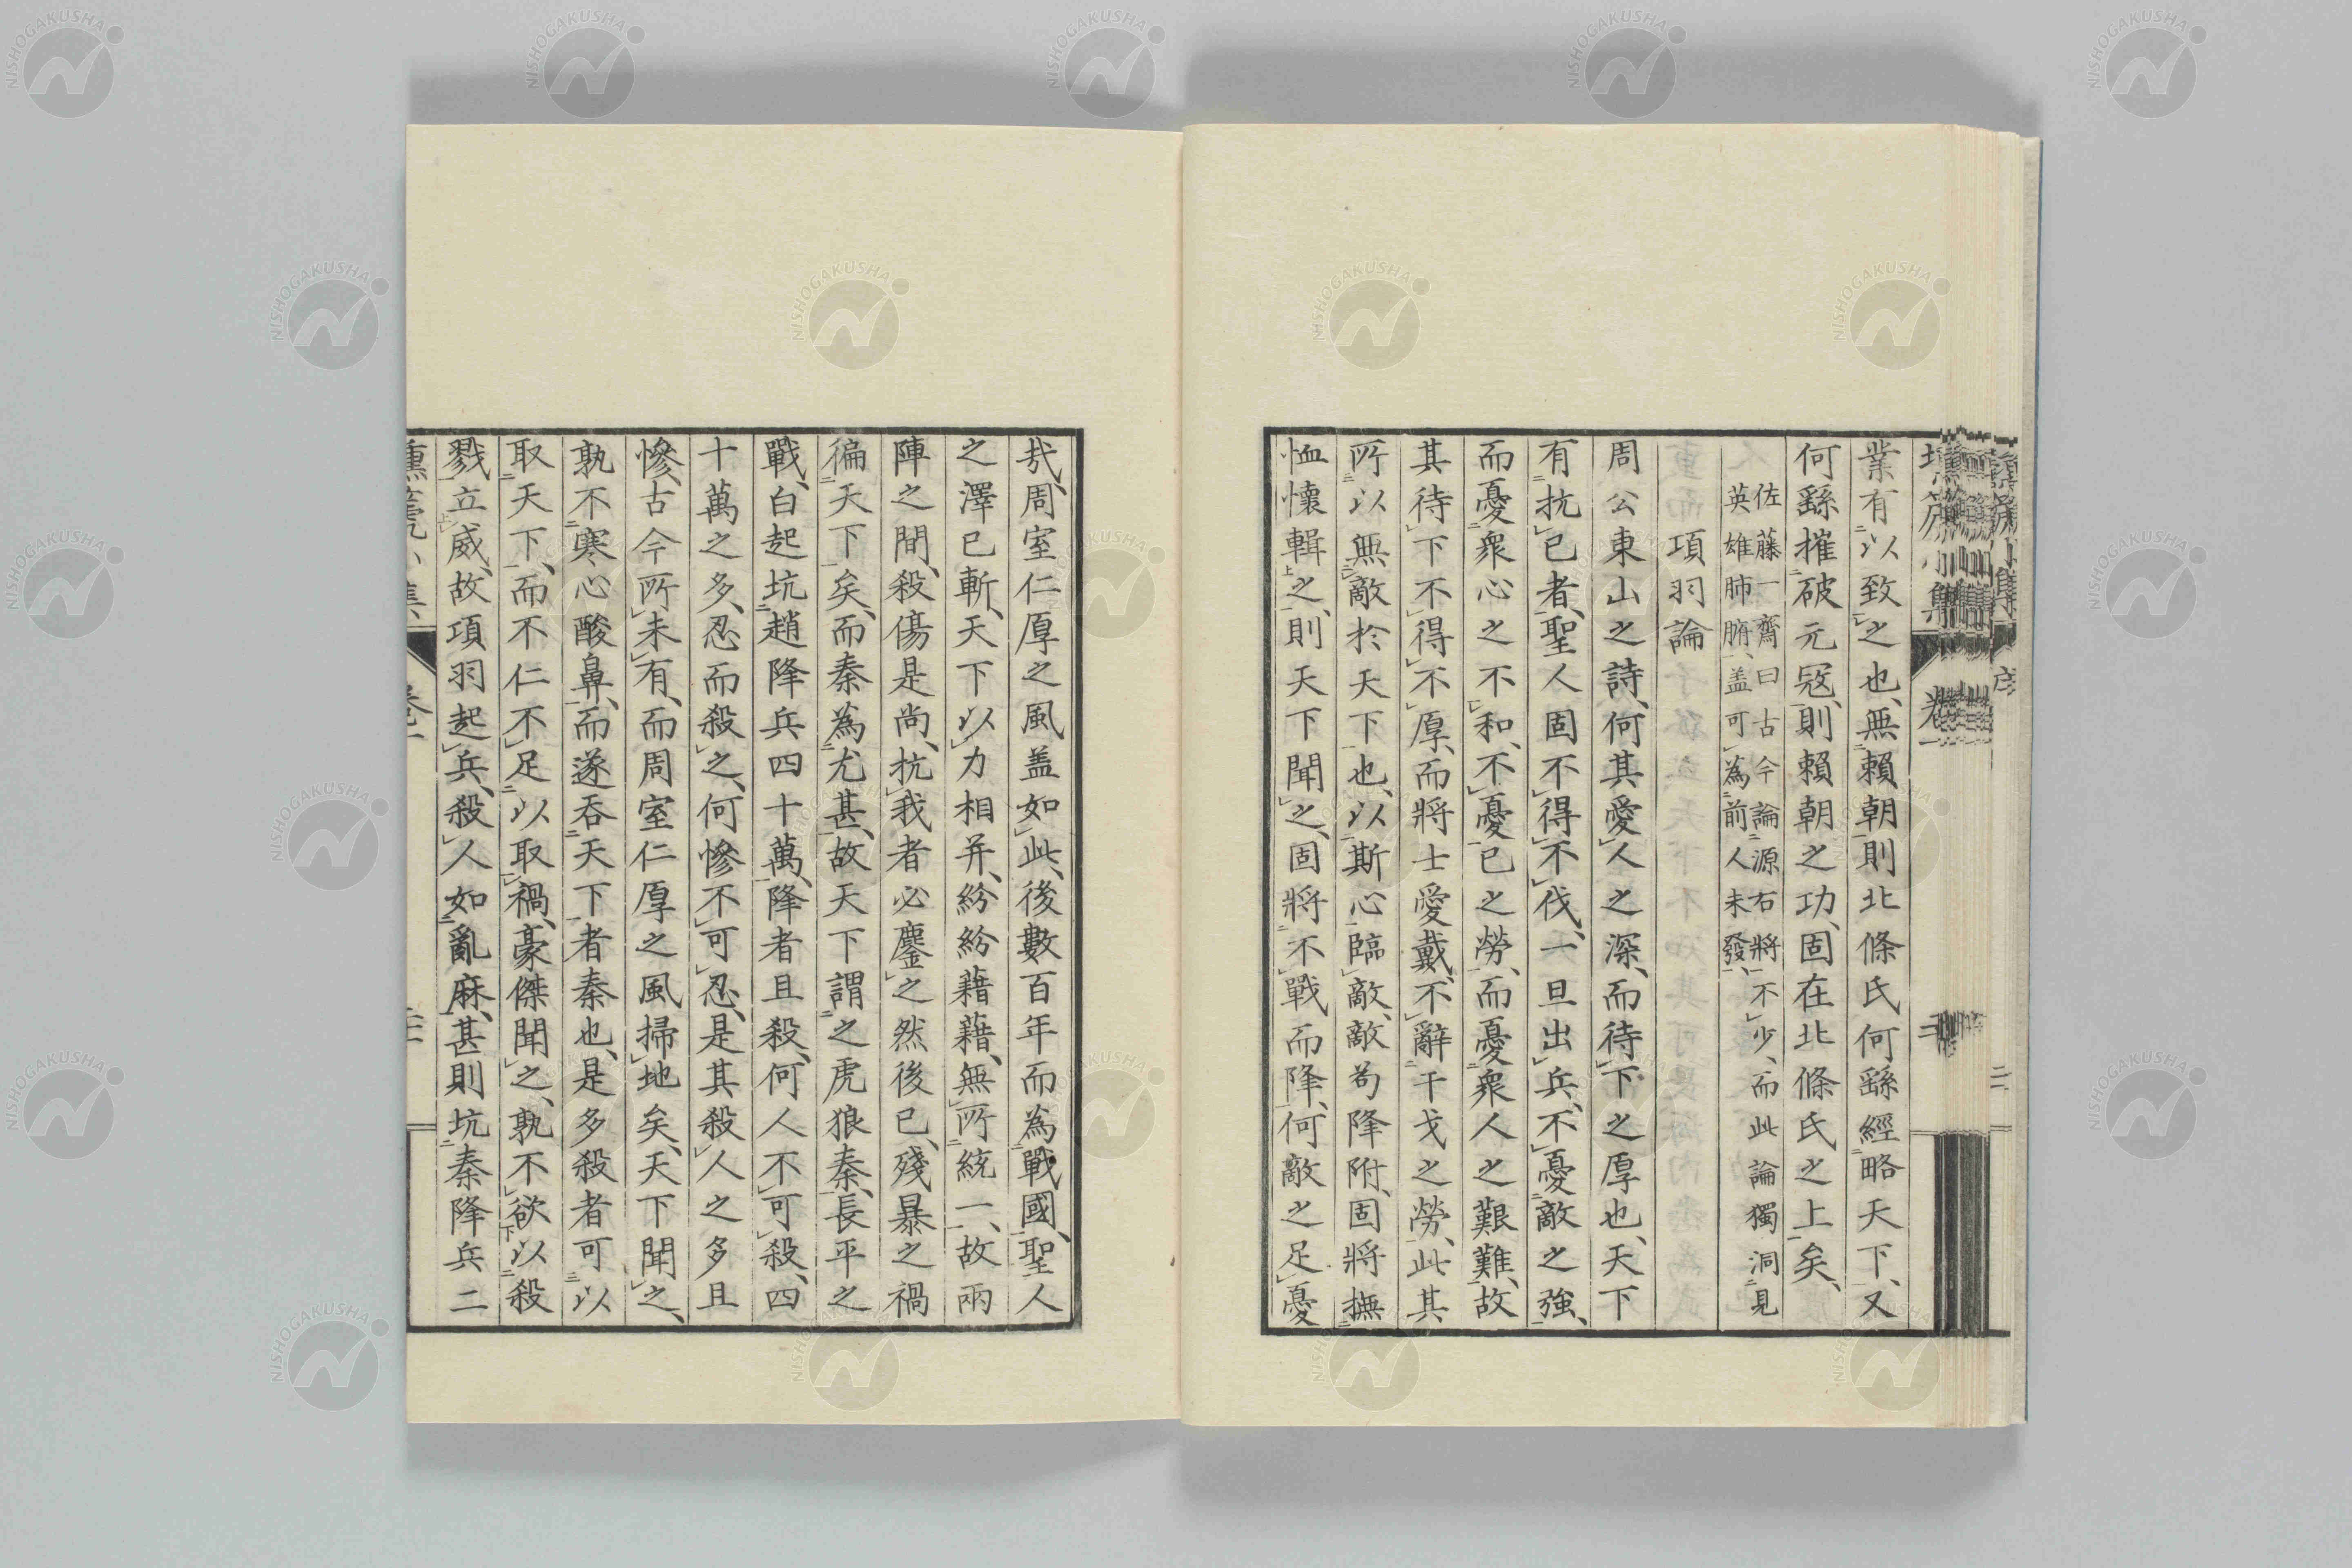 業有以致之也、無賴朝則北條氏何繇經略天下、又
何繇摧破元冦、則賴朝之功、固在北條氏之上矣、
佐藤一齋曰古今論源右將不少、而此論獨洞見
英雄肺腑、盖可為前人未發、
項羽論
周公東山之詩、何其愛人之深、而待下之厚也、天下
有抗己者、聖人固不得不伐、一旦出兵、不憂敵之強、
而憂衆心之不和、不憂己之勞、而憂衆人之艱難、故
其待下不得不厚、而將士愛戴、不辭干戈之勞、此其
所以無敵於天下也、以斯心臨敵、敵苟降附、固將撫
恤懷輯之、則天下聞之、固將不戰而降、何敵之足憂
哉、周室仁厚之風盖如此、後數百年而為戰國、聖人
之澤已斬、天下以力相并、紛紛藉藉、無所統一、故兩
陣之間、殺傷是尚、抗我者必鏖之然後已、殘暴之禍
徧天下矣、而秦為尤甚、故天下謂之虎狼秦、長平之
戰、白起坑趙降兵四十萬、降者且殺、何人不可殺、四
十萬之多、忍而殺之、何慘不可忍、是其殺人之多且
慘、古今所未有、而周室仁厚之風掃地矣、天下聞之、
孰不寒心酸鼻、而遂吞天下者秦也、是多殺者可以
取天下、而不仁不足以取禍、豪傑聞之、孰不欲以殺
戮立威、故項羽起兵、殺人如亂麻、甚則坑秦降兵二
NISHOGAKUSHA